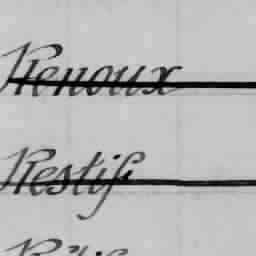 Renoux
Restif